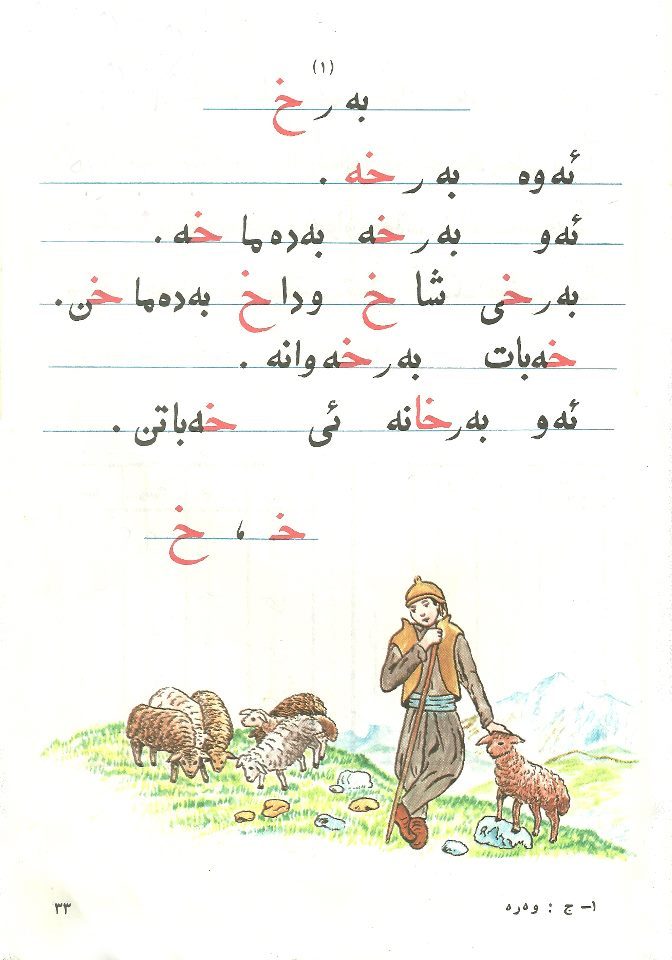 (١)
بەرخ
ئەوە بەرخە .
ئەو بەرخە بەدەماخە .
بەرخی شاخ وداخ بەدەماخن .
خەبات بەرخەوانە .
ئەو بەرخانە ئی خەباتن .
خـ ، خ
١- ج : وەرە
٣٣